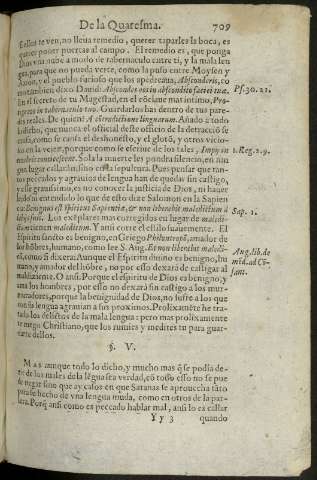 De la Quaresma. 709
Estos te ven, no lleua remedio, querer taparles la boca, es
querer poner puertas al campo. El remedio es, que ponga
Dios vna nube a modo de tabernaculo entre ti, y la mala len
gua, para que no pueda verte, como la puso entre Moysen y
Aaron, y el pueblo furioso que los apedreaua, Abscondens, co
mo tambien dixo Dauid: Abscondes eos in abscondito faciei tuæ.
En el secreto de tu Magestad, en el rocicne mas intimo, Pro-
teges in tabernaculo tuo. Guardarlos has dentro de tus pare-
des reales. De quien? A contradictione linguarum. Añado a todo
lo dicho, que nunca el oficial deste officio de la detracció se
como se cansa el deshonesto, y el glotó, y otros vicio-
sos en la vejez, porque como se escriue de los tales, Impij in
tenebris conticescent. Sola la muerte les pondra silencio, en nin
gun lugar callan sino en esta sepultura. Pues pensar que tan-
tos peccados y agrauios de lengua han de quedar sin castigo,
y esse grauissimo, es no conocer la justicia de Dios, ni hauer
leydo ni entendido lo que de esto dize Salomon en la Sapien
cia: Benignus est spiritus Sapientiæ, & non liberabit maledictum à
labijs suis. Los exéplares mas corregidos en lugar de maledi-
ctum tienen maledicum. Y assi corre el estilo suauemente. El
Espiritu sancto es benigno, en Griego Philantropos, amador de
los hóbres, humano, como lee S. Aug. Et non liberabit maledi-
cũ, como si dixera: Aunque el Espiritu diuino es benigno, hu-
mano, y amador de los hóbre, no por esso dexará de castigar al
maldiziente. O ansi: Porque el Espiritu de Dios es benigno, y
ama los hombres, por esso no dexará sin castigo a los mur-
muradores, porque la benignidad de Dios, no sufre a los que
con su lengua agrauian a sus proximos. Prolixaméte he tra-
tado los delictos de la mala lengua: pero mas prolixamente
te ruego Christiano, que los rumies y medites tu para guar-
darte dellos.
§. V.
MAS aunque todo lo dicho, y mucho mas q̃ se podia de-
zir de los males de la légua sea verdad, có todo esso no se pue
de negar sino que ay casos en que Satanas se aprouecha táto
para su hecho de vna lengua muda, como en otros de la par-
lera. Porq̃ ansi como es peccado hablar mal, ansi lo es callar
Y y 3 quando
Ps. 30. 21.
1. Reg. 2. 9.
Sap. 1.
Aug. lib. de